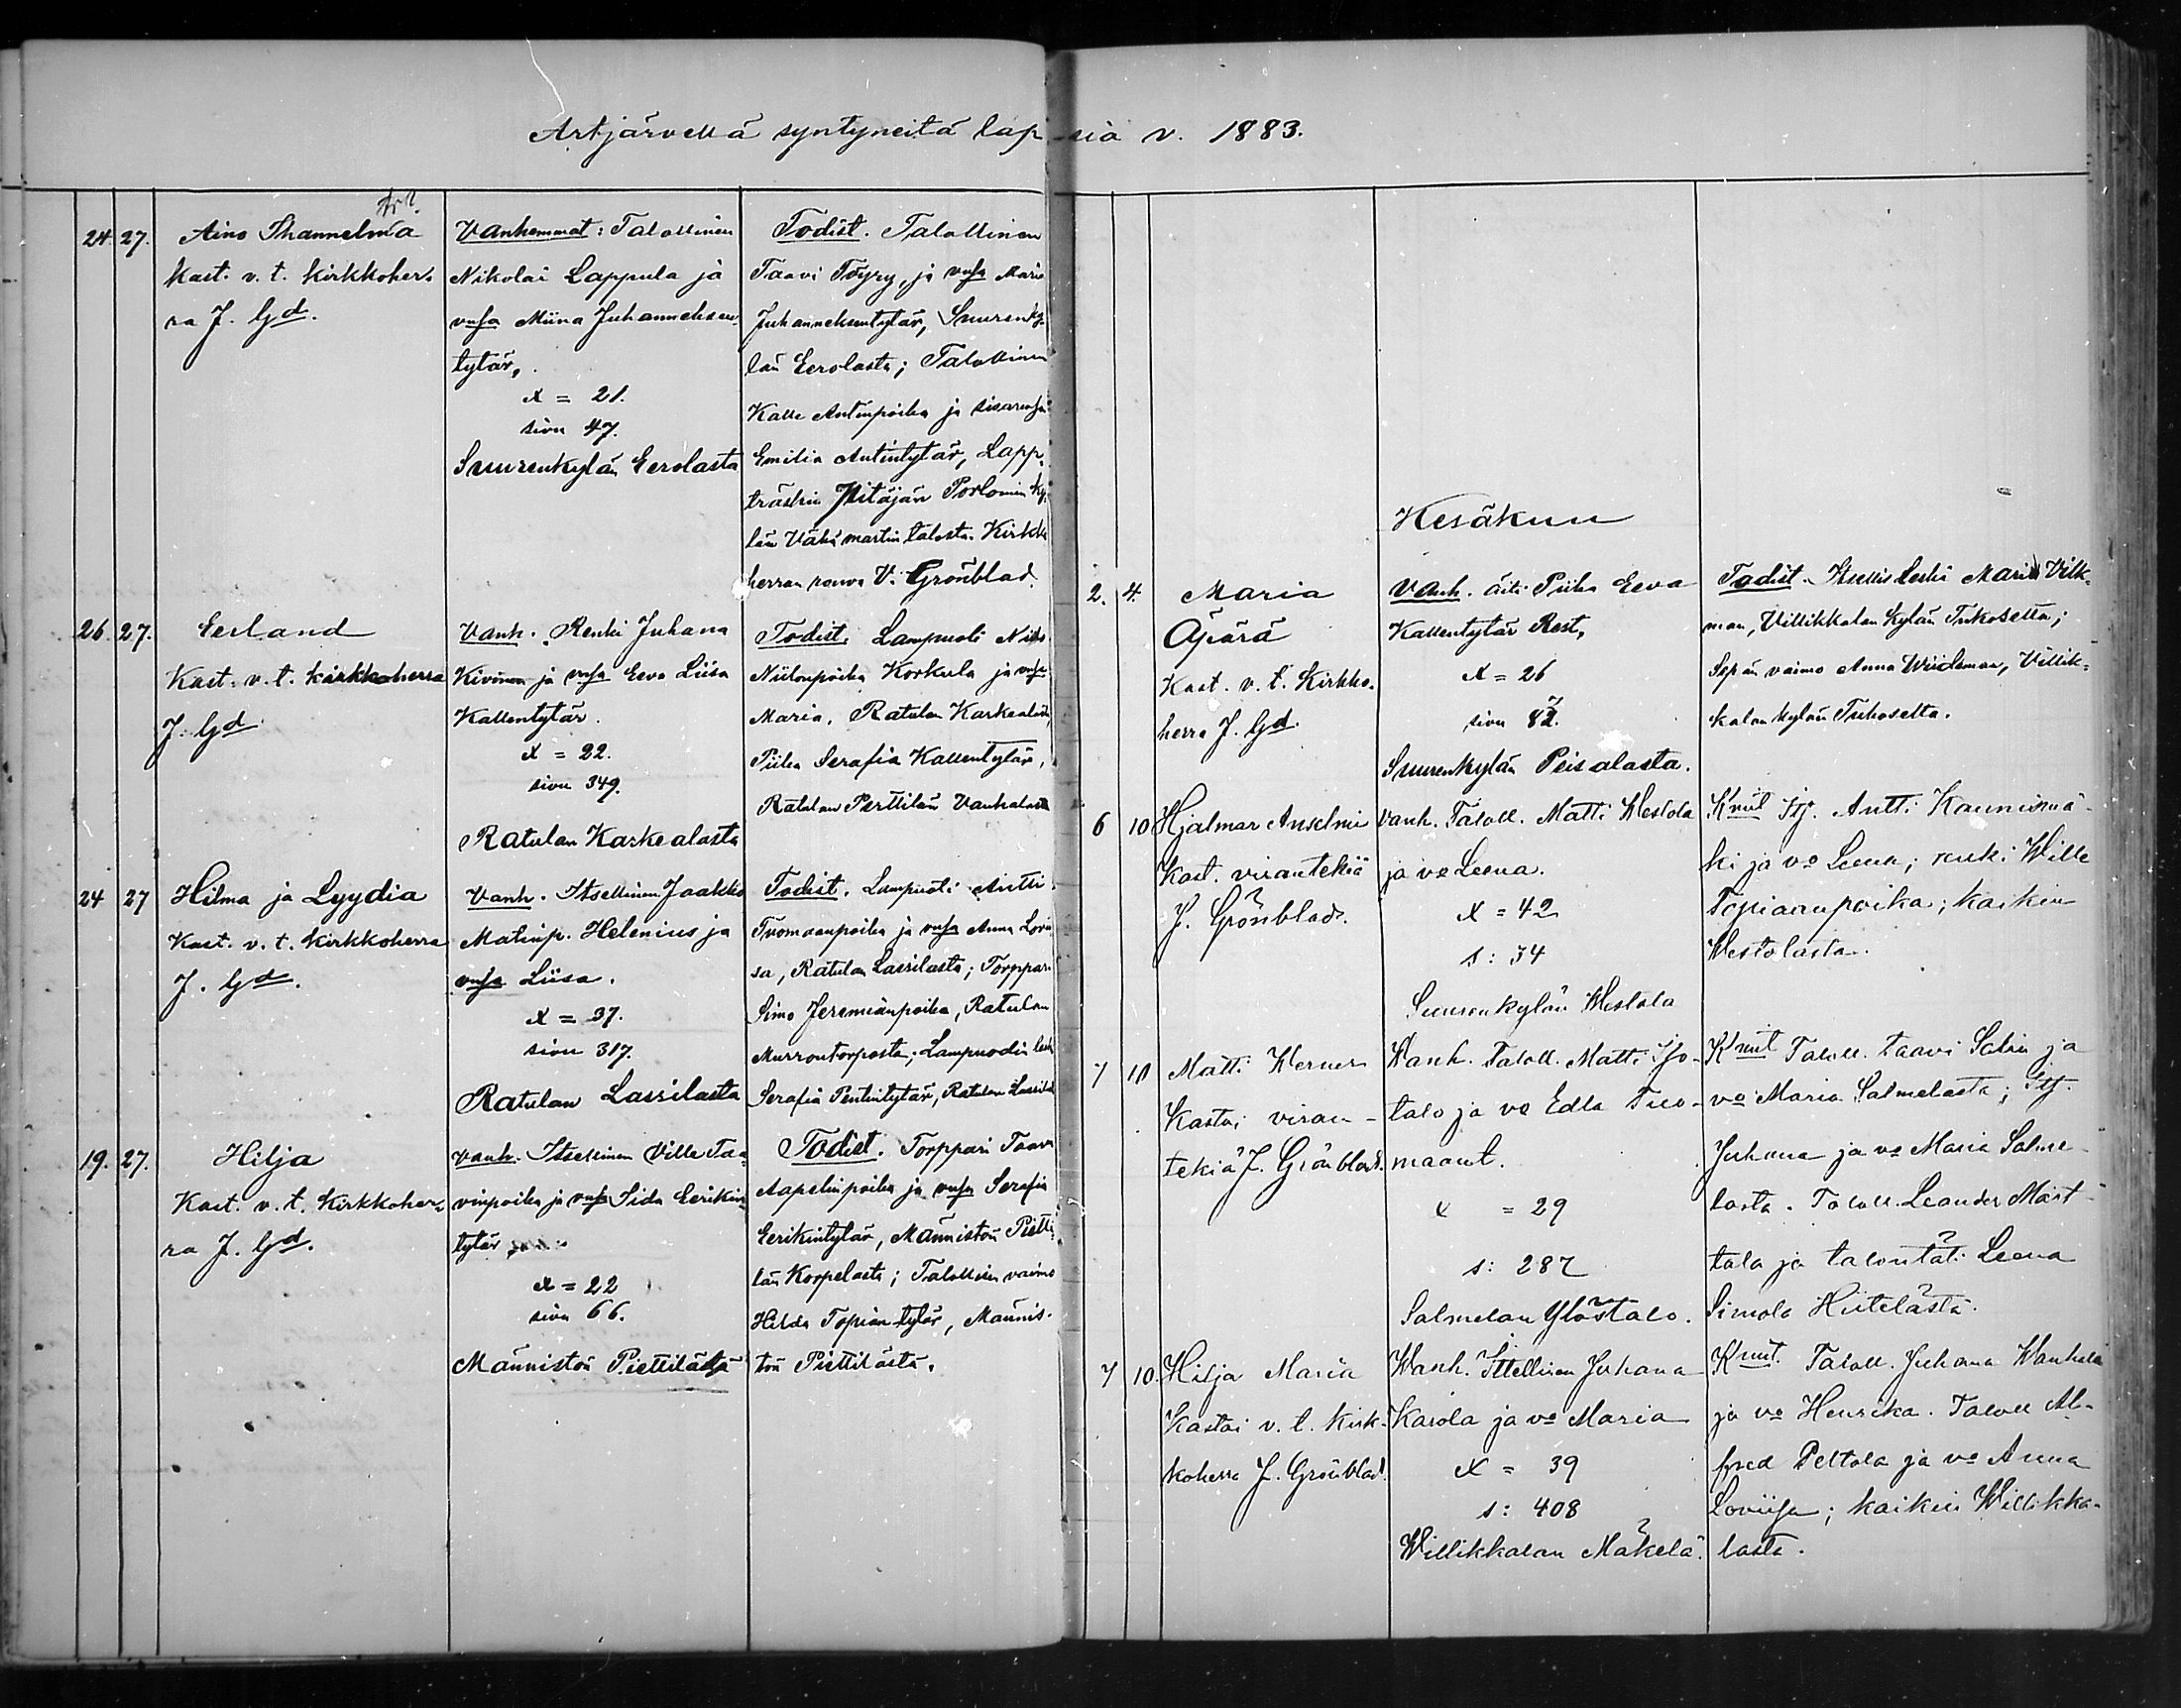 Artjärvellä syntyneitä lapsia v. 1883.
24. 27.
Aino
Kast. v. t. kirkkoher-
ra J. Gd.
Vanhemmat: Talollinen
Nikolai Lappula ja
vmsa Miina Juhanneksen-
tytär,
x = 21.
sivu 47.
Suurenkylän Eerolasta
Todist. Talollinen
Taavi Töyry, ja vmsa Maria
Juhanneksentytär, Suurenky-
län Eerolasta; Talollinen
Kalle Antinpoika ja sisarensa
Emilia Antintytär, Lapp-
träskin Pitäjän Porlomin ky-
län Vähä martin talosta. Kirkko
herran rouva V. Grönblad.
26. 27.
Eerland
Kast. v. t. kirkkoherra
J. Gd
Vanh. Renki Juhana
Kivinen ja vmsa Eeva Liisa
Kallentytär.
x = 22.
sivu 349.
Ratulan Kaskealasta
Todist. Lampuoti Niilo
Niilonpoika Korkula ja vmsa
Maria, Ratulan Kaskealasta,
Piika Serafia Kallentytär,
Ratulan Perttilän Vanhalasta
24 27
Hilma ja Lyydia
Kast. v. t. kirkkoherra
J. Gd.
Vanh. Itsellinen Jaakko
Matinp. Helenius ja
vmsa Liisa.
x = 37.
sivu 317.
Ratulan Lassilasta
Todist. Lampuoti Antti
Tuomaanpoika ja vmsa Anna Lovi-
sa, Ratulan Lassilasta; Torppari
Simo Jeremiänpoika, Ratulan
Murrontorpasta; Lampuodin leski
Serafia Penttitytär, Ratulan Lassilasta
19. 27.
Hilja
Kast. v. t. Kirkkoher-
ra J. Gd.
Vanh. Itsellinen Ville Taa-
vinpoika ja vmsa Iida Eerikin-
tytär
x = 22
sivu 66.
Männistön Piettilästä
Todist. Torppari Taavi
Aapelinpoika ja vmsa Serafia
Eerikintytär, Männistön Pietti-
län Korpelasta; Talollisen vaimo
Hilda Topiantytär, Männis-
tön Piettilästä.
Kesäkuu
2. 4.
Maria
Äpärä
Kast. v. t. Kirkko-
herra J. Gd.
Vanh. äiti Piika Eeva
Kallentytär Rost,
x = 26
sivu 82.
Suurenkylän Peisalasta.
Todist. Itsellis leski Maria Vilk-
man, Villikkalan kylän Tukosetta;
Sepän vaimo Anna Wiideman, Villik-
kalan kylän Tukosetta.
6 10
Hjalmar Anselmi
Kast. virantekiä
J. Grönblad.
Vanh. Taloll. Matti Westola
ja vo Leena.
x = 42
s: 34
Suurenkylän Westola
Kmit Itj. Antti Kaunismä-
ki ja vo Leena; renki Wille
Topiaanpoika; kaikin
Westolasta.
7 10
Matti Werner
Kastoi viran-
tekiä J. Grönblad.
Wanh. Taloll. Matti Iso-
talo ja vo Edla Tuo-
maant.
x = 29
s: 287
Salmelan Ylöstalo.
Kmit Taloll. Taavi Salin ja
vo Maria Salmelasta; Itj.
Juhana ja vo Maria Salme-
lasta. Taloll. Leander Mäst-
tala ja talontät: Leena
Simola Hiitelästä.
7 10.
Hilja Maria
Kastoi v. t. Kirk-
koherra J. Grönblad.
Wanh. Ittellinen Juhana
Karola ja vo Maria
x = 39
s: 408
Willikkalan Mäkelä.
Kmit. Taloll. Juhana Wanhala
ja vo Henrika. Taloll Al-
fred Peltola ja vo Anna
Loviisa; kaikin Willikka-
lasta.